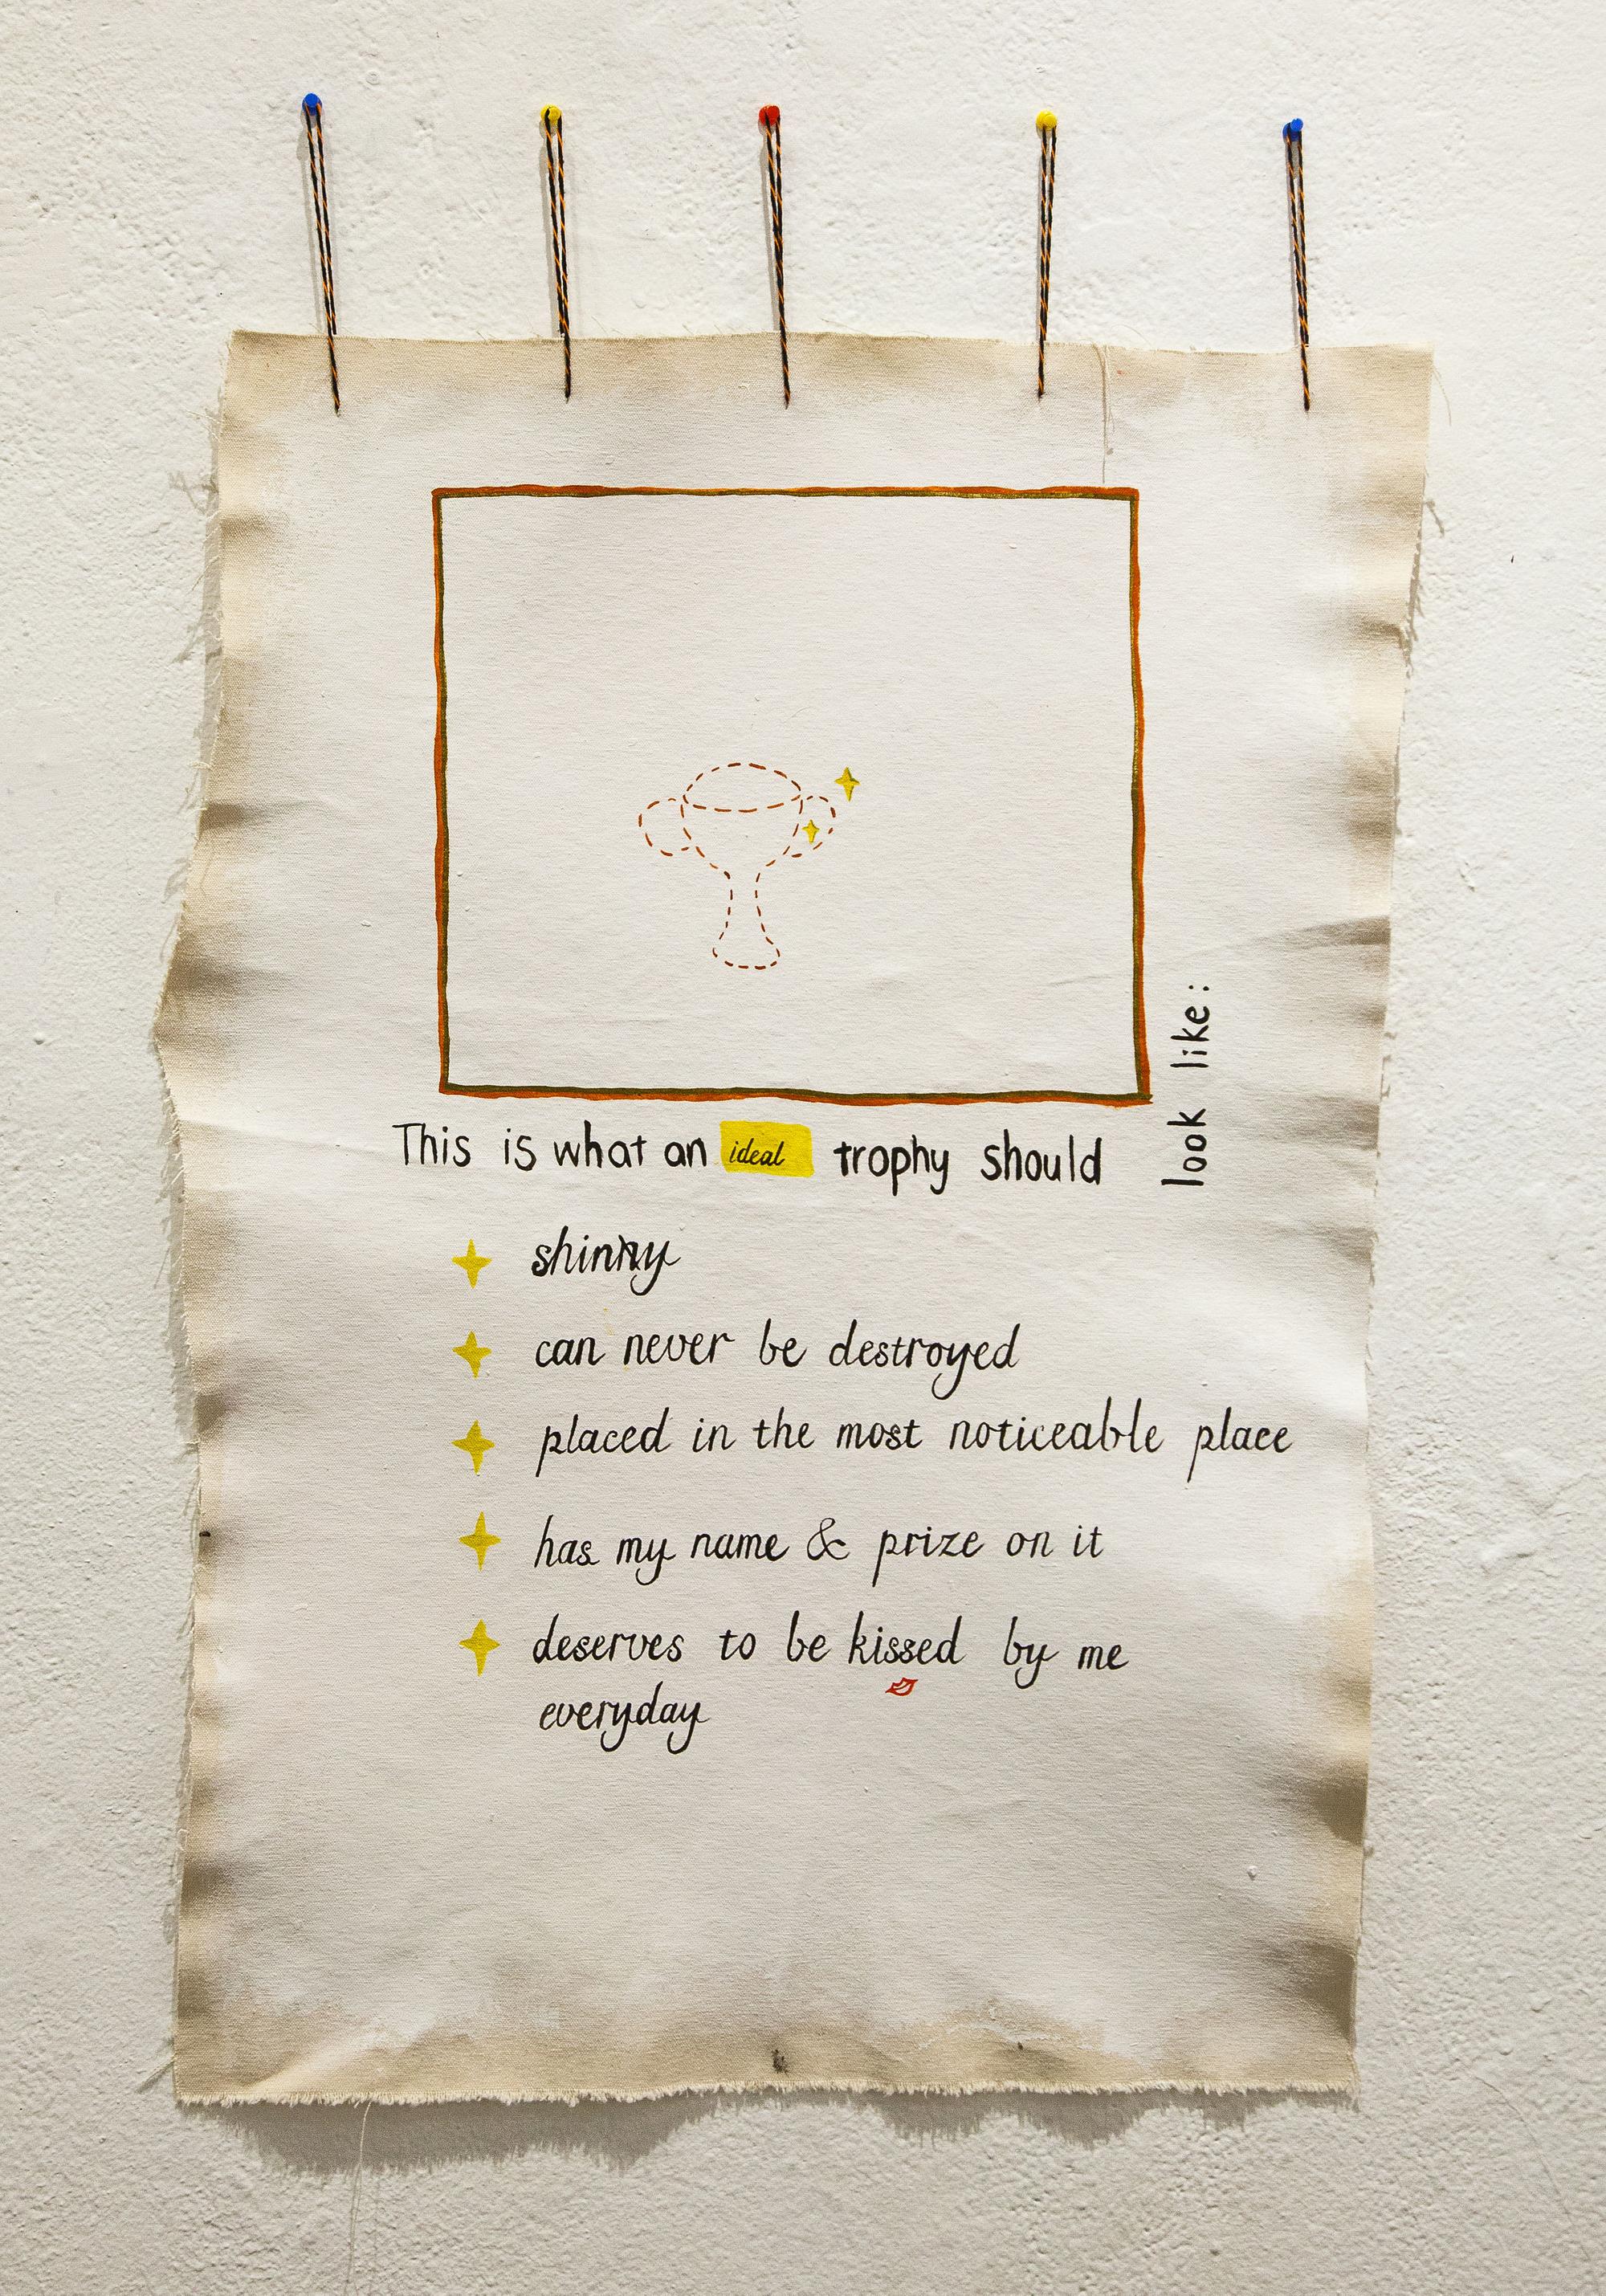 This is what an ideal trophy should
look like:
shinny
can never be destroyed
placed in the most noticeable place
has my name & prize on it
deserves to be kissed by me
everyday